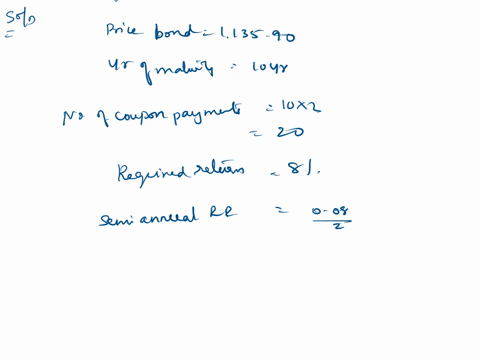 Soln
=
Price bond = 1,135.90
Yr of maturity = 10yr
No of coupon payments = 10x2
= 20
Required return = 8%.
semi annual RR = 0.08
2